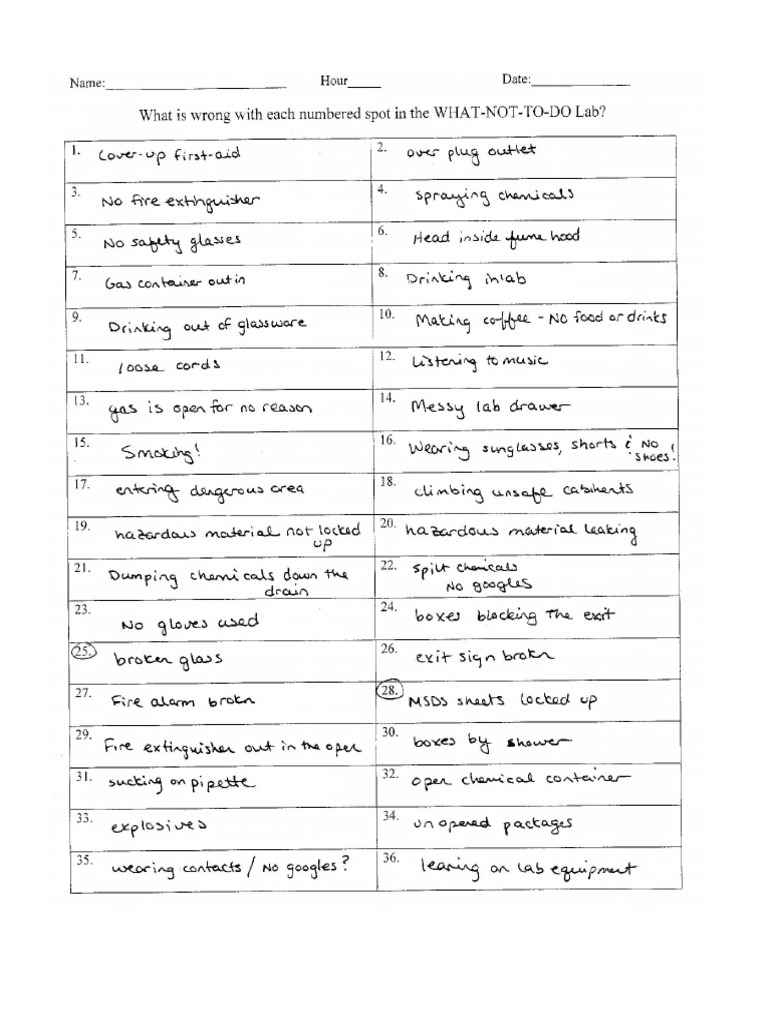 Name:____________________ Hour_____ Date:____________
What is wrong with each numbered spot in the WHAT-NOT-TO-DO Lab?
1. Cover-up first-aid
2. over plug outlet
3. No fire extinguisher
4. Spraying chemicals
5. No safety glasses
6. Head inside fume hood
7. Gas container out in
8. Drinking in lab
9. Drinking out of glassware
10. Making coffee - No food or drinks
11. loose cords
12. Listening to music
13. gas is open for no reason
14. Messy lab drawer
15. Smoking!
16. Wearing sunglasses, shorts & No
shoes!
17. entering dangerous area
18. climbing unsafe cabinents
19. hazardous material not locked
up
20. hazardous material leaking
21. Dumping chemicals down the
drain
22. spilt chemicals
No googles
23. No gloves used
24. boxes blocking the exit
25. broken glass
26. exit sign brokn
27. Fire alarm brokn
28. MSDS sheets locked up
29. Fire extinguisher out in the open
30. boxes by shower
31. sucking on pipette
32. open chemical container
33. explosives
34. unopened packages
35. wearing contacts / No googles?
36. leaning on lab equipment